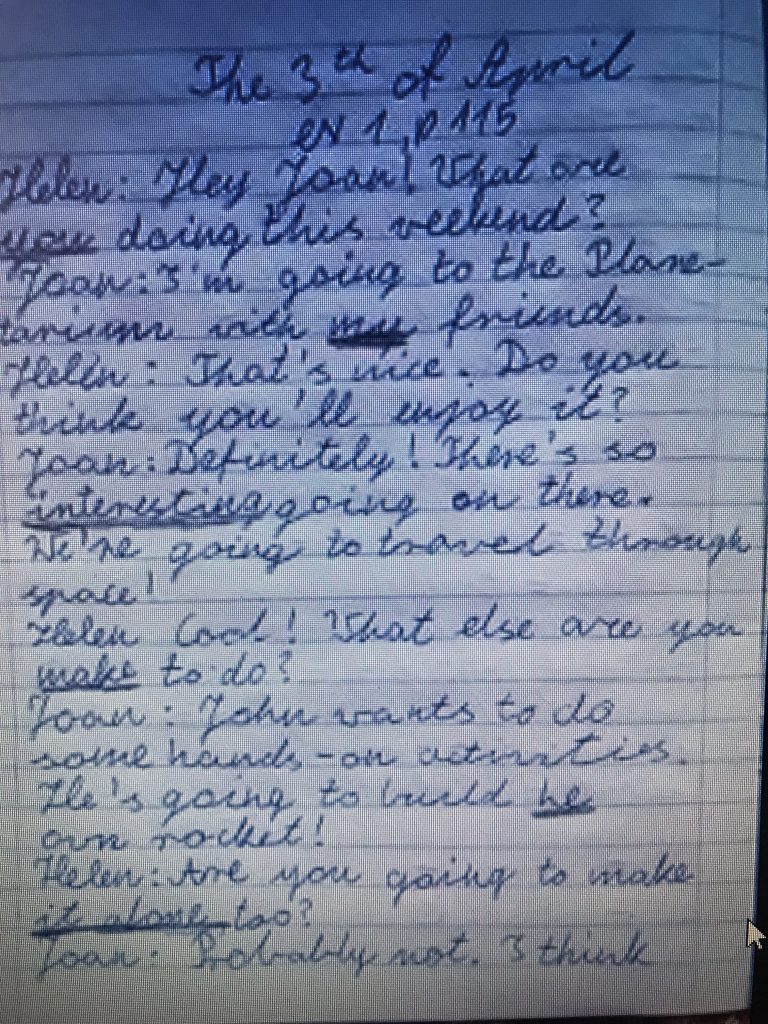 The 3th of April
ex 1, p 115
Helen: Hey Joan! What are
you doing this weekend?
Joan: I'm going to the Plane-
tarium with my friends.
Helen: That's nice. Do you
think you'll enjoy it?
Joan: Definitely! There's so
interesting going on there.
We're going to travel through
space!
Helen Cool! What else are you
make to do?
Joan: John wants to do
some hands-on activities.
He's going to build he
own rocket!
Helen: Are you going to make
it alone too?
Joan: Probably not. I think